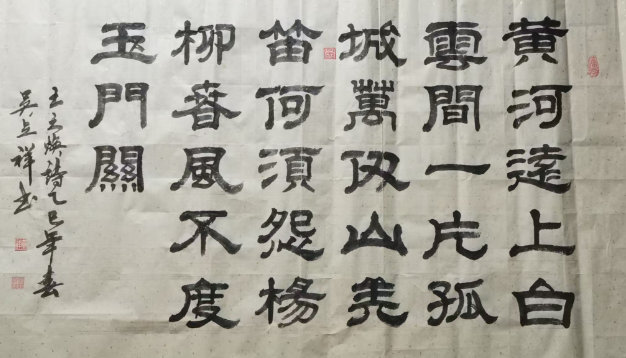 黄河遠上白
雲間一片孤
城萬仞山羌
笛何須怨楊
柳春風不度
玉門關
王之渙詩乙巳年春
吴立祥书